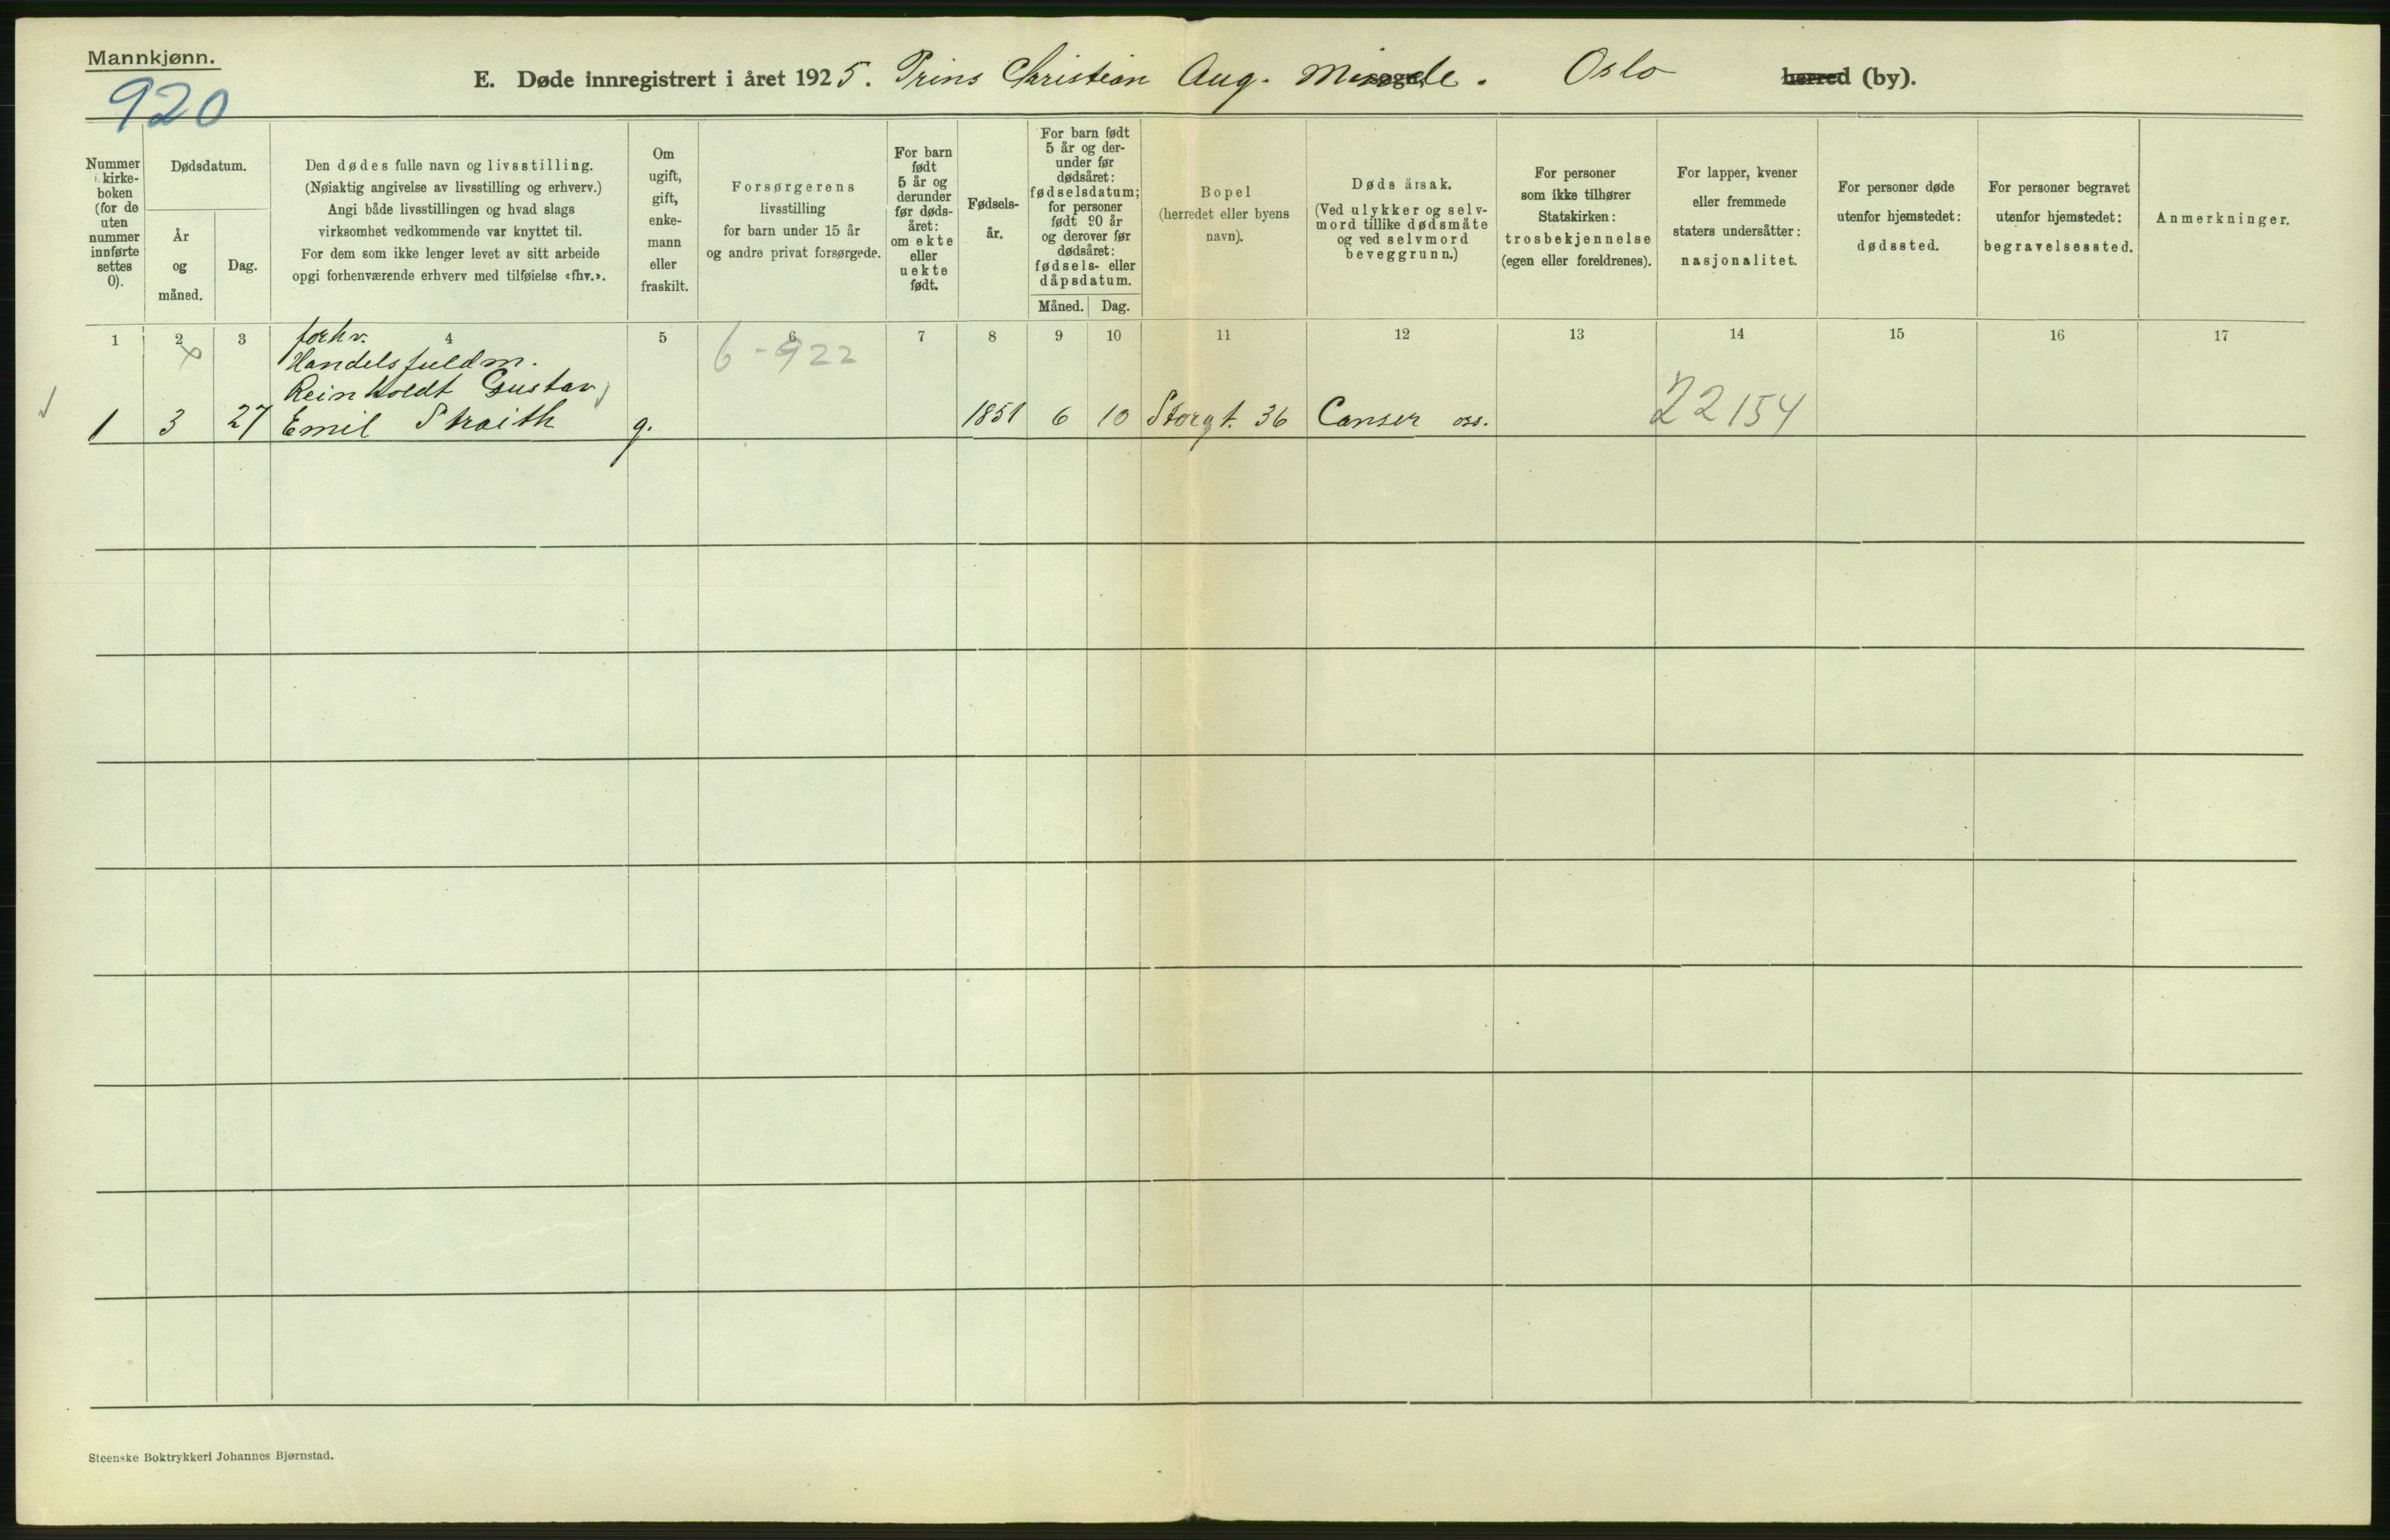 Mannkjønn.
920
E. Døde innregistrert i året 1925. Prins Christian Aug. Minde. Oslo herred (by).
Nummer i kirke-boken (for de uten nummer innførte settes 0).
Dødsdatum.
År og måned.
Dag.
Den dødes fulle navn og livsstilling.
(Nøiaktig angivelse av livsstilling og erhverv.)
Angi både livsstillingen og hvad slags
virksomhet vedkommende var knyttet til.
For dem som ikke lenger levet av sitt arbeide
opgi forhenværende erhverv med tilføielse «fhv.».
Om ugift, gift, enke-mann eller fraskilt.
Forsørgerens
livsstilling
for barn under 15 år
og andre privat forsørgede.
For barn født 5 år og derunder før døds-året: om ekte eller uekte født.
Fødsels-år.
For barn født 5 år og der-under før dødsåret: fødselsdatum; for personer født 90 år og derover før dødsåret: fødsels- eller dåpsdatum.
Måned.
Dag.
Bopel
(herredet eller byens
navn).
Dødsårsak.
(Ved ulykker og selv-
mord tillike dødsmåte
og ved selvmord
beveggrunn.)
For personer
som ikke tilhører
Statskirken:
trosbekjennelse
(egen eller foreldrenes).
For lapper, kvener
eller fremmede
staters undersåtter:
nasjonalitet.
For personer døde
utenfor hjemstedet:
dødssted.
For personer begravet
utenfor hjemstedet:
begravelsessted.
Anmerkninger.
1 2 3 4 5 6 7 8 9 10 11 12 13 14 15 16 17
forhv.
Handelsfuldm.
6-922
Reinholdt Gustav
1 3 27 Emil Straith g. 1851 6 10 Storgt. 36 Canser oss. 22154
Steenske Boktrykkeri Johannes Bjørnstad.